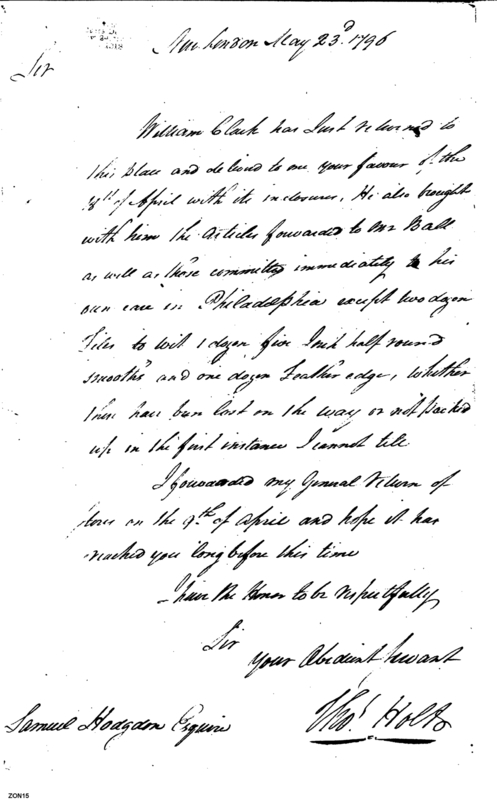 New London May 23d. 1796
Sir
William Clark has Just returned to
this place and deliverd to me your favour of the
8th of April with its inclosures, He also brought
with him the articles forwarded to Mr Ball
as well as those committed immediately to his
own care in Philadelphia except two dozen
Files to wit 1 dozen five Inch half round
smooths and one dozen Feather edge, whether
these have been lost on the way or not packed
up in the first instance I cannot tell
I forwarded my General Return of
stores on the 9th of April and hope it has
reached you long before this time
I have the Honor to be respectfully
Sir
your Obedient Servant
Thos. Holt
Samuel Hodgdon Esquire
ZON15